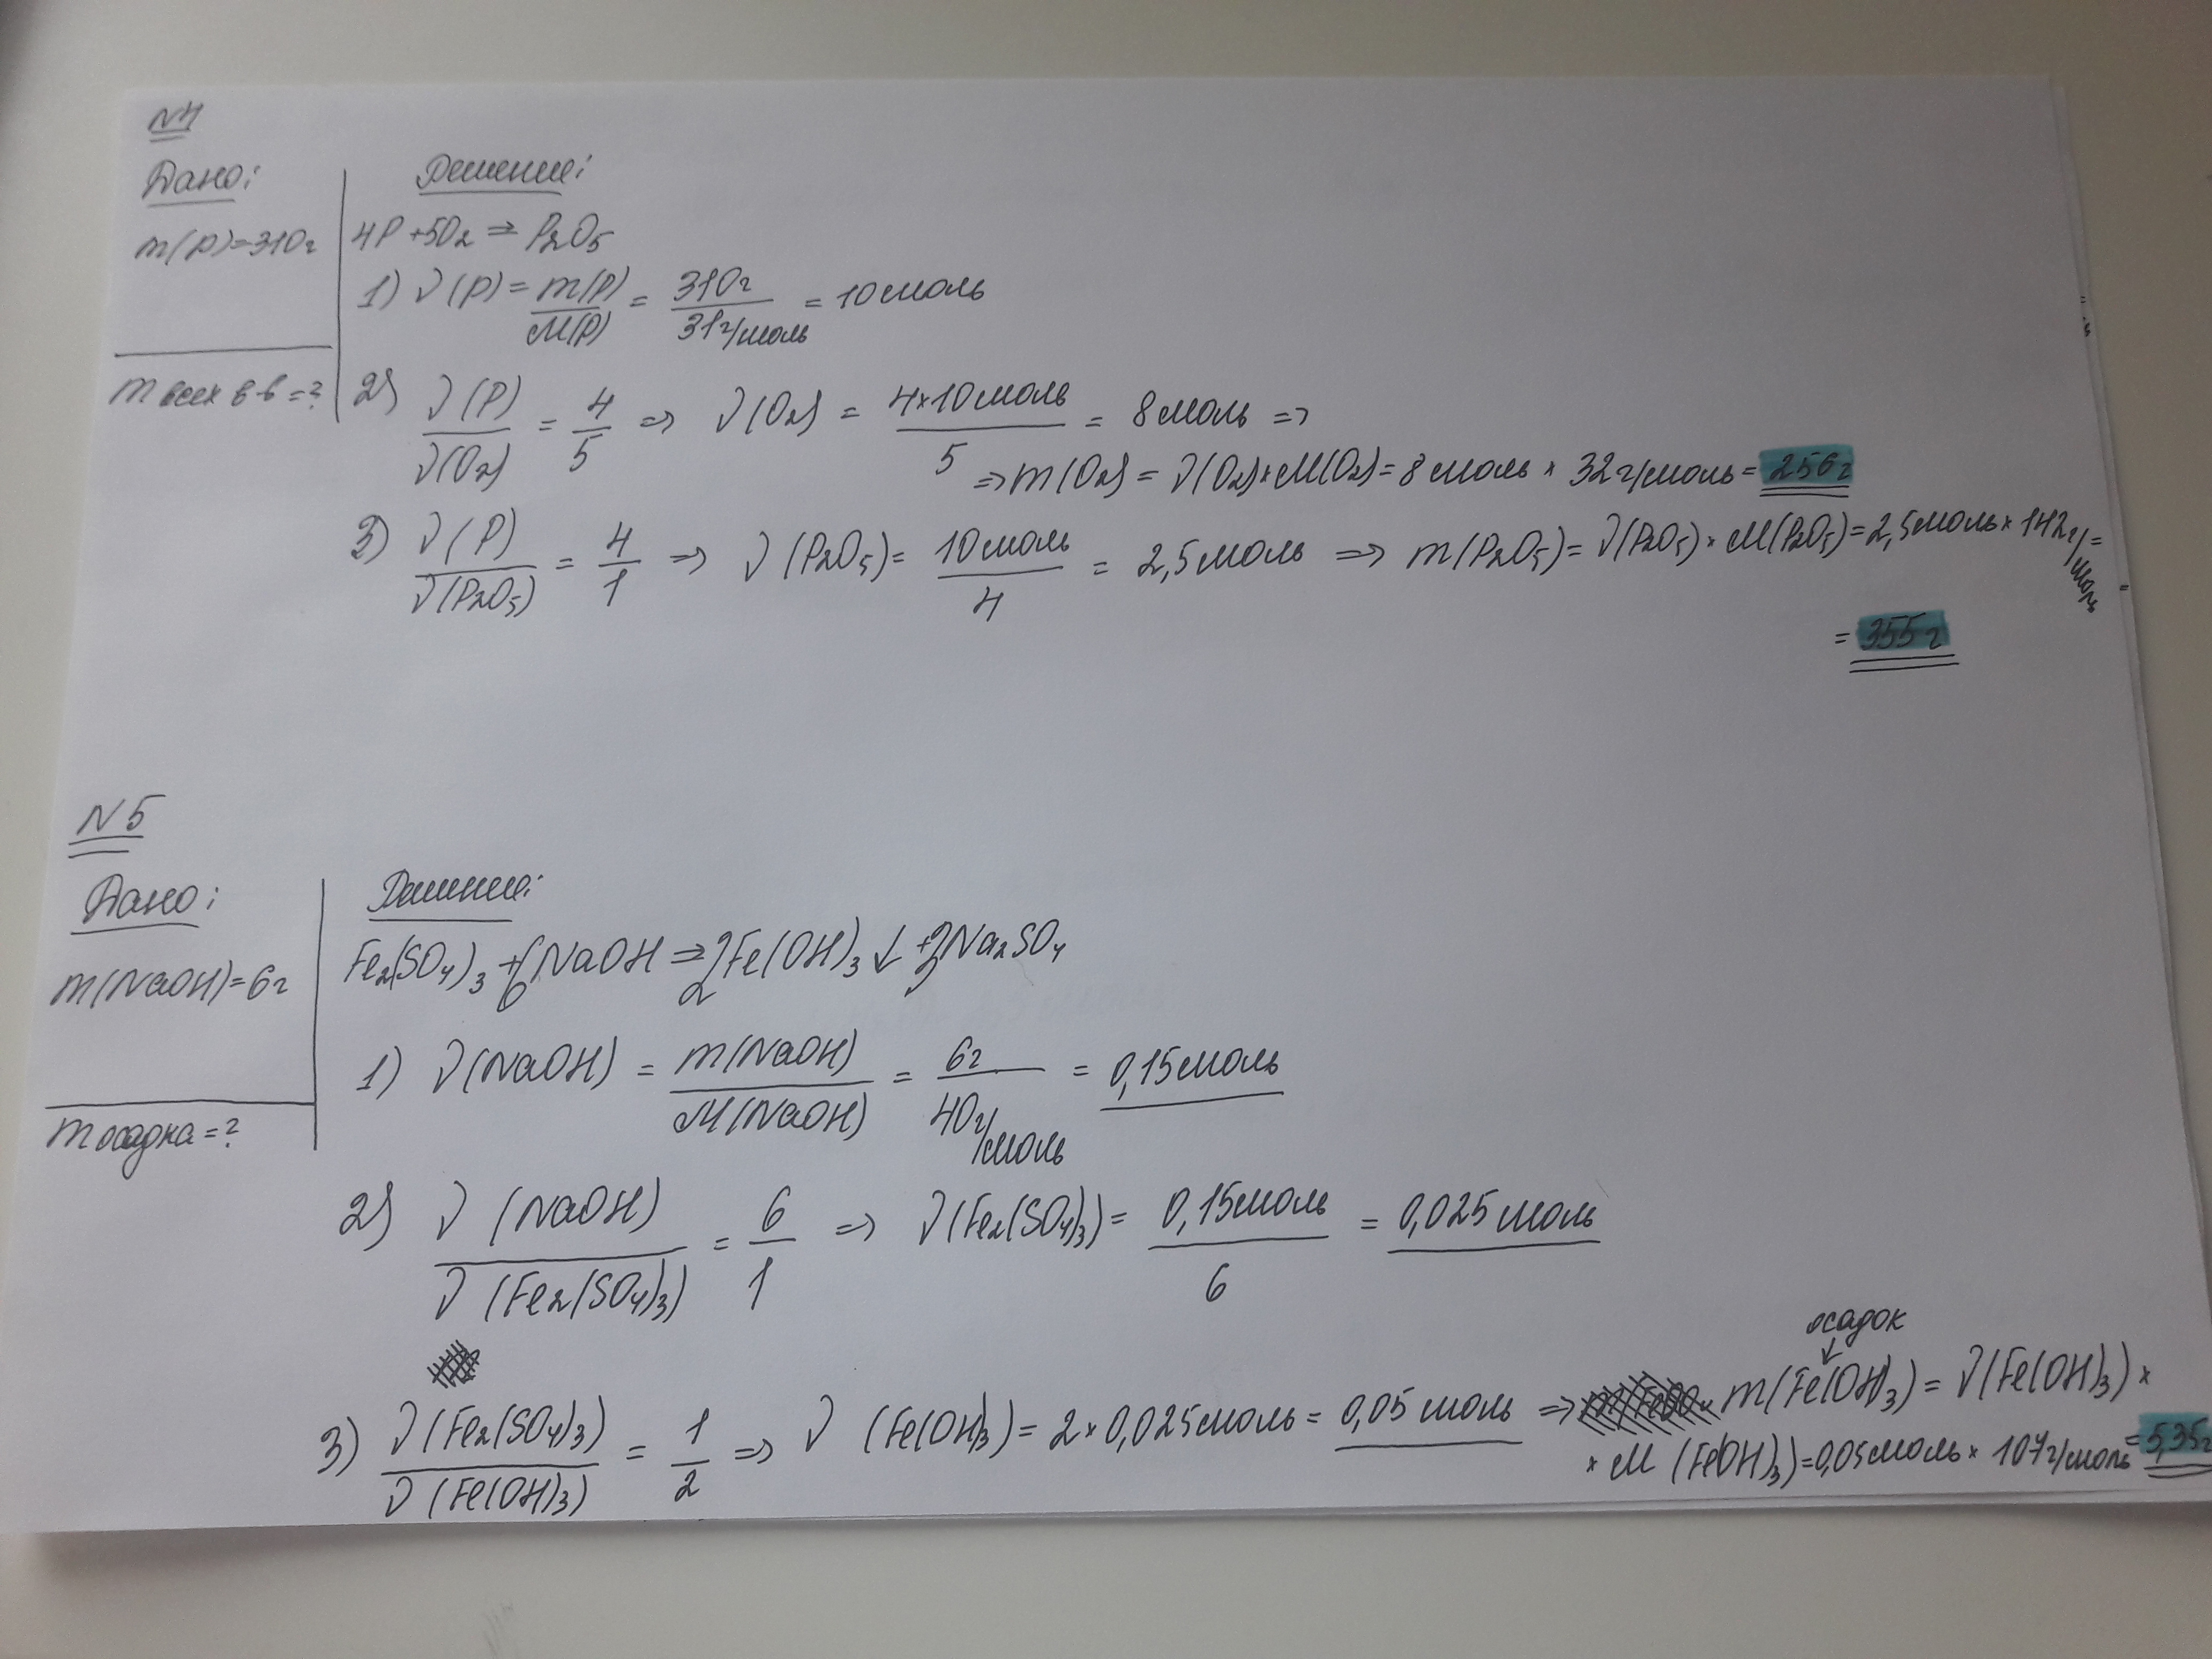 N4
Дано:
Решение:
m(p)=310г
4P+5O₂ ⇒ P₂O₅
1) ν(p) = m(P)/M(P) = 310г/31г/моль = 10 моль
m всех в-в = ?
2) ν(P)/ν(O₂) = 4/5 ⇒ ν(O₂) = 4×10 моль/5 = 8 моль ⇒
⇒ m(O₂) = ν(O₂)×M(O₂) = 8 моль × 32 г/моль = 256г
3) ν(P)/ν(P₂O₅) = 4/1 ⇒ ν(P₂O₅) = 10 моль/4 = 2,5 моль ⇒ m(P₂O₅) = ν(P₂O₅) × M(P₂O₅) = 2,5 моль × 142 г/моль =
= 355г
N5
Дано:
Решение:
m(NaOH)=6г
Fe₂(SO₄)₃ + 6NaOH ⇒ 2Fe(OH)₃↓ + 3Na₂SO₄
1) ν(NaOH) = m(NaOH)/M(NaOH) = 6г/40г/моль = 0,15 моль
m осадка = ?
2) ν(NaOH)/ν(Fe₂(SO₄)₃) = 6/1 ⇒ ν(Fe₂(SO₄)₃) = 0,15 моль/6 = 0,025 моль
осадок
3) ν(Fe₂(SO₄)₃)/ν(Fe(OH)₃) = 1/2 ⇒ ν(Fe(OH)₃) = 2×0,025 моль = 0,05 моль ⇒ m(Fe(OH)₃) = ν(Fe(OH)₃) ×
× M(Fe(OH)₃) = 0,05 моль × 107 г/моль = 5,35г